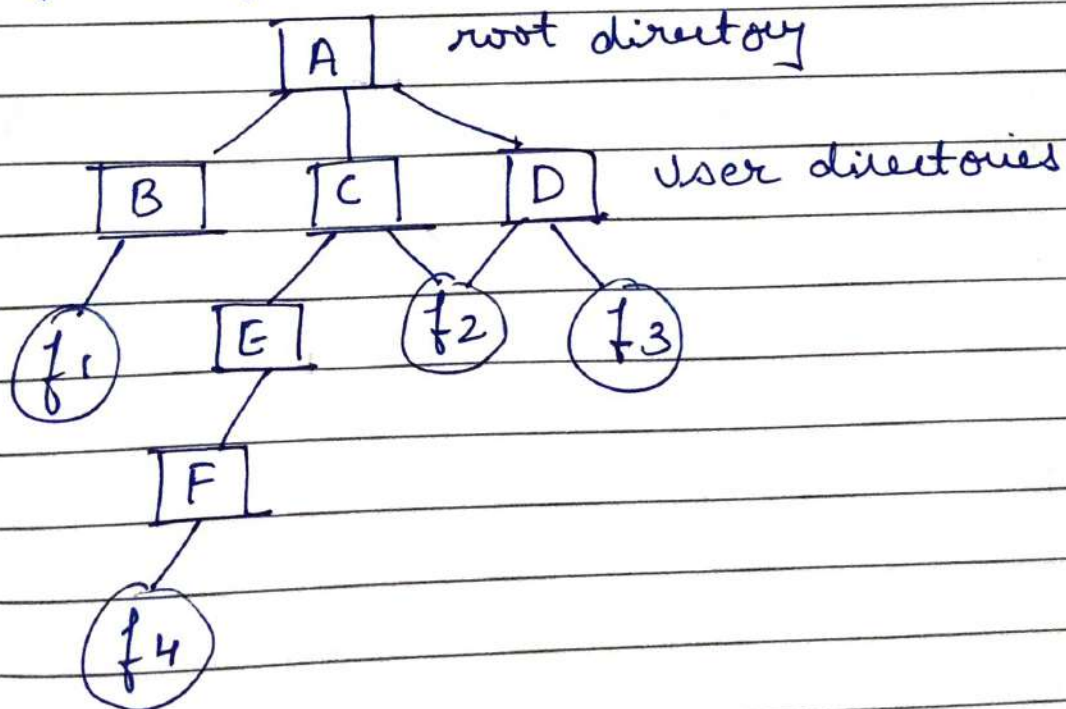 A root directory
B C D User directories
f1 E f2 f3
F
f4